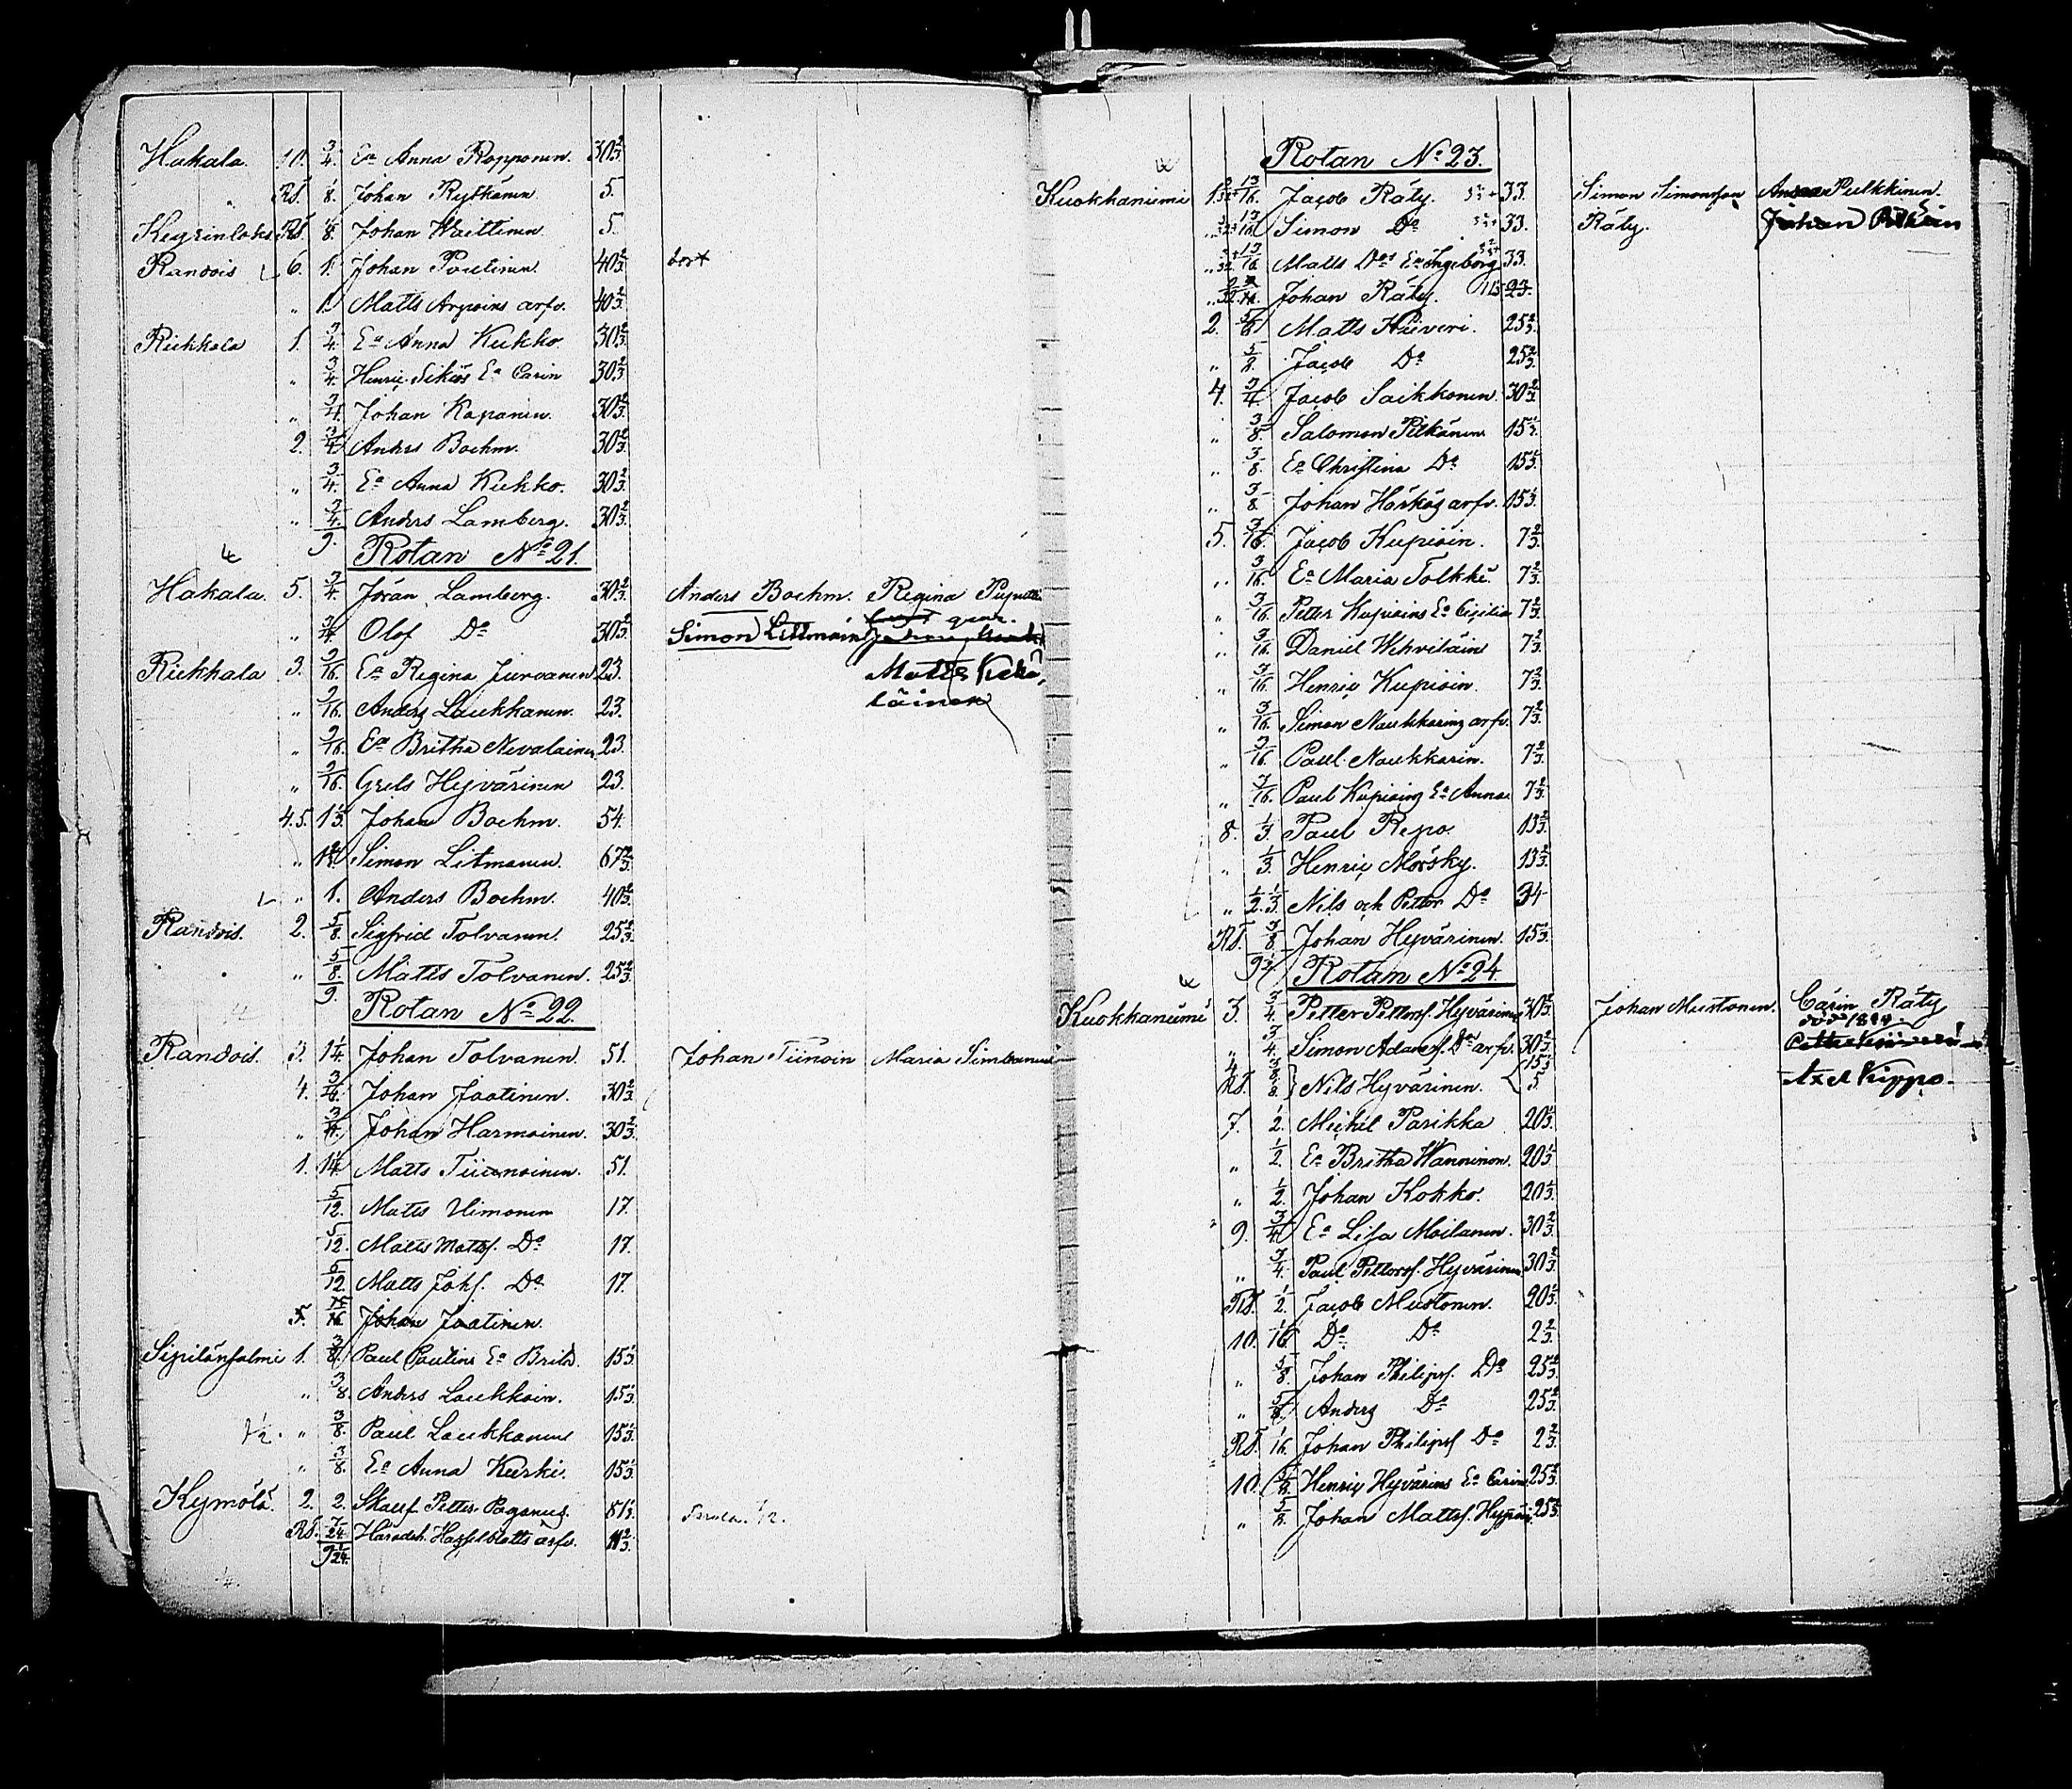 Hakala. 10. 3/4. Ea Anna Ropponen. 30 2/3.
" RS. 1/8. Johan Rytkänen 5.
RS. 1/8. Johan Waittinen 5.
Randois 6. 1. Johan Poutinen. 40 2/3. bort
" 1. Matts arfv. 40 2/3.
Rickkala 1. 3/4. Ea Anna Kukko 30 2/3.
" 3/4. Henric Ea Carin 30 2/3.
" 3/4. Johan Kapanen. 30 2/3.
2. 3/4. Anders Boehm. 30 2/3.
" 3/4. Ea Anna Kukko. 30 2/3.
" 3/4. Anders Lamberg. 30 2/3.
9.
Rotan No 21.
Hakala. 5. 3/4. Jöran Lamberg. 30 2/3. Anders Boehm. Regina
" 3/4. Olof Do 30 2/3. Simon Littmain
Rickhala 3. 9/16. Ea Regina Jurvanen 23. Matts Kekä
" 9/16. Anders Laukkanen. 23. läinen
" 9/16. Ea Britha Nevalainen 23.
" 9/16. Grels Hyvärinen 23.
4.5. 1 1/3. Johan Boehm. 54.
" Simon Litmanen. 67 2/3.
" 1. Anders Boehm. 40 2/3.
Randois. 2. 5/8. Sigfrid Tolvanen. 25 2/3.
" 5/8. Matts Tolvanen. 25 2/3.
9.
Rotan No 22.
Randois. 3. 1 1/4. Johan Tolvanen. 51. Johan Tiinoin Maria
4. Johan Jaatinen. 30 2/3.
" 3/4. Johan Harmoinen. 30 2/3.
1. 1 1/4. Matts 51.
5/12. Matts Uimonen 17.
5/12. Matts Mattsf. Do 17.
5/12. Matts Johf. Do 17.
5. 15/16 Johan Jaatinen
Sipilänsalmi 1. 3/8. Paul Poutins Ea Brita. 15 1/3.
" 3/8. Anders Laukkain. 15 1/3.
7 1/2. " 3/8. Paul Laukkanen 15 1/3.
" 3/8. Ea Anna Kurki. 15 1/3.
Kymölä. 2. 2. Petter Paganus. 81 1/3. 1/2.
RS. 7/24. Häradsh. Hasselblatts arfv. 11 2/3.
9 1/24.
Rotan No 23.
Kuokkaniemi 1. 13/16. Jacob Räty. 33. Simon Simonsson Pulkkinen.
" 13/16. Simon Do 33. Räty. Johan
" 13/16. Matts Dos Ea Ingeborg 33.
" Johan Räty.
2. Matts Kiiveri. 25 2/3.
" 5/8. Jacob Do 25 2/3.
4. 3/4. Jacob Saikkonen. 30 2/3.
" 3/8. Salomon Pitkänen 15 1/3.
" 3/8. Ea Christina Do 15 1/3.
" 3/8. Johan Harkös arfv. 15 1/3.
5. 3/16. Jacob Kupiain. 7 2/3.
" 3/16. Ea Maria Tolkki. 7 2/3.
" 3/16. Petter Kupiains Ea Cicilia 7 2/3.
" 3/16. Daniel Wehviläin 7 2/3.
" 3/16. Henric Kupiain. 7 2/3.
" 3/16. Simon Naukkarins arfv. 7 2/3.
" 3/16. Paul Naukkarin. 7 2/3.
" 3/16. Paul Kupiains Ea Anna 7 2/3.
8. 1/3. Paul Repo. 13 2/3.
" 1/3. Henric Mörsky. 13 2/3.
" 1/2. 1/3. Nils och Petter Do 34
RS. 3/8. Johan Hyvärinen. 15 1/3.
Rotan No 24.
Kuokkaniemi 3. 3/4. Petter Pettersf. Hyvärinen 30 2/3. Johan Mustonen. Carin Räty
" 3/4. Simon Adamsf. Do arfv. 30 2/3. död 1894.
4. 3/8. 15 1/3
RS. 1/8. } Nils Hyvärinen. 5. Axel Kippo.
7. 1/2. Michel Parikka 20 1/3.
" 1/2. Ea Britha Wänninen. 20 1/3.
" 1/2. Johan Kokko. 20 1/3.
9. 3/4. Ea Lisa Moilanen. 30 2/3.
" 3/4. Paul Pettersf. Hyvärinen 30 2/3.
RS. 1/2. Jacob Mustonen. 20 1/3.
10. 1/16. Do Do 2 2/3.
" 5/8. Johan Philipsf. Do 25 2/3.
" 5/8. Anders Do 25 2/3.
RS. 1/16. Johan Philipsf Do 2 2/3.
10. 5/8. Henric Hyvärins Ea Carin 25 2/3.
" 5/8. Johan Mattsf. 25 2/3.